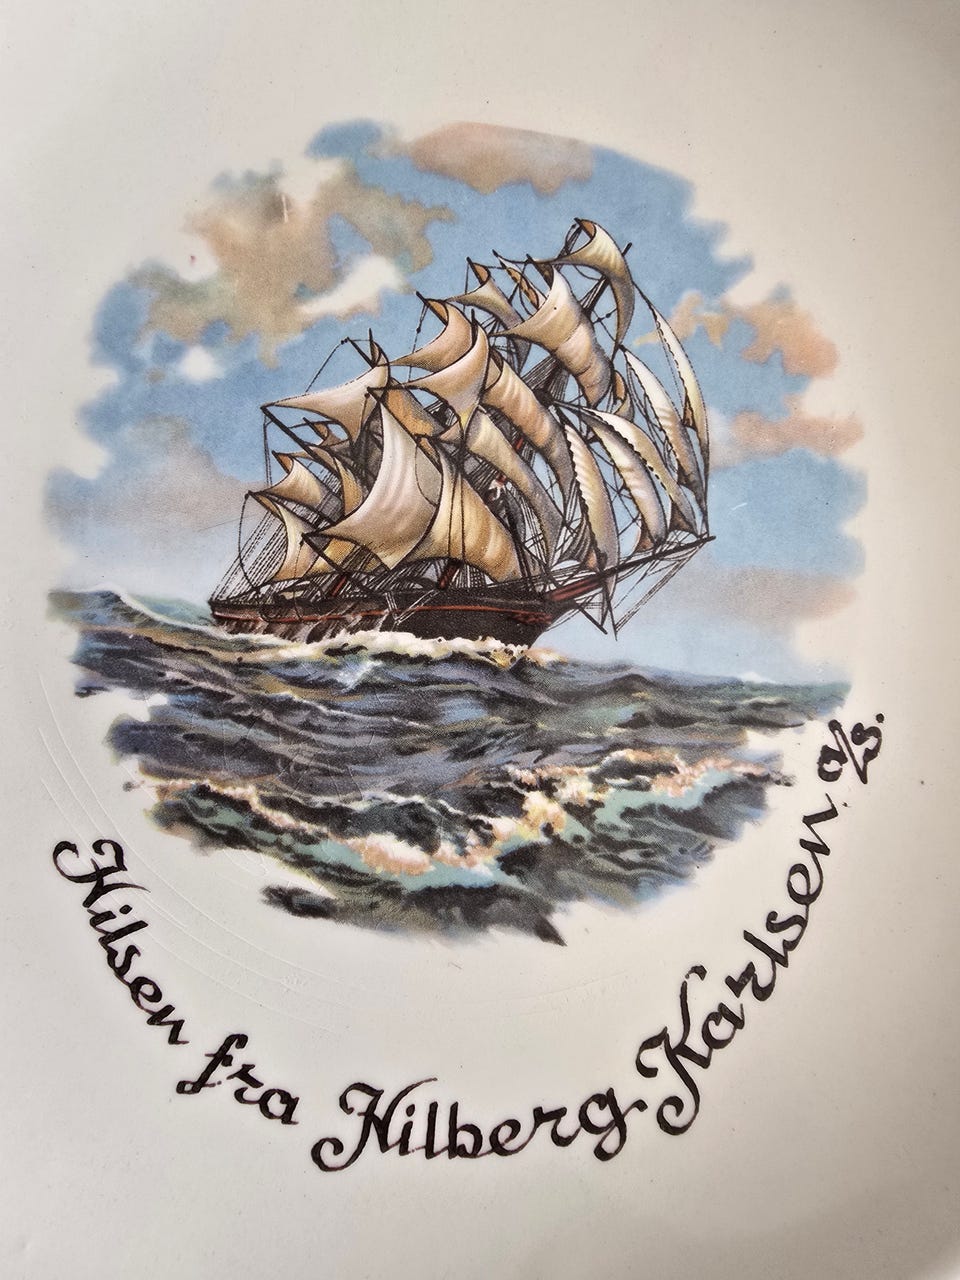 Hilsen fra Hilberg Karlsen a/s.